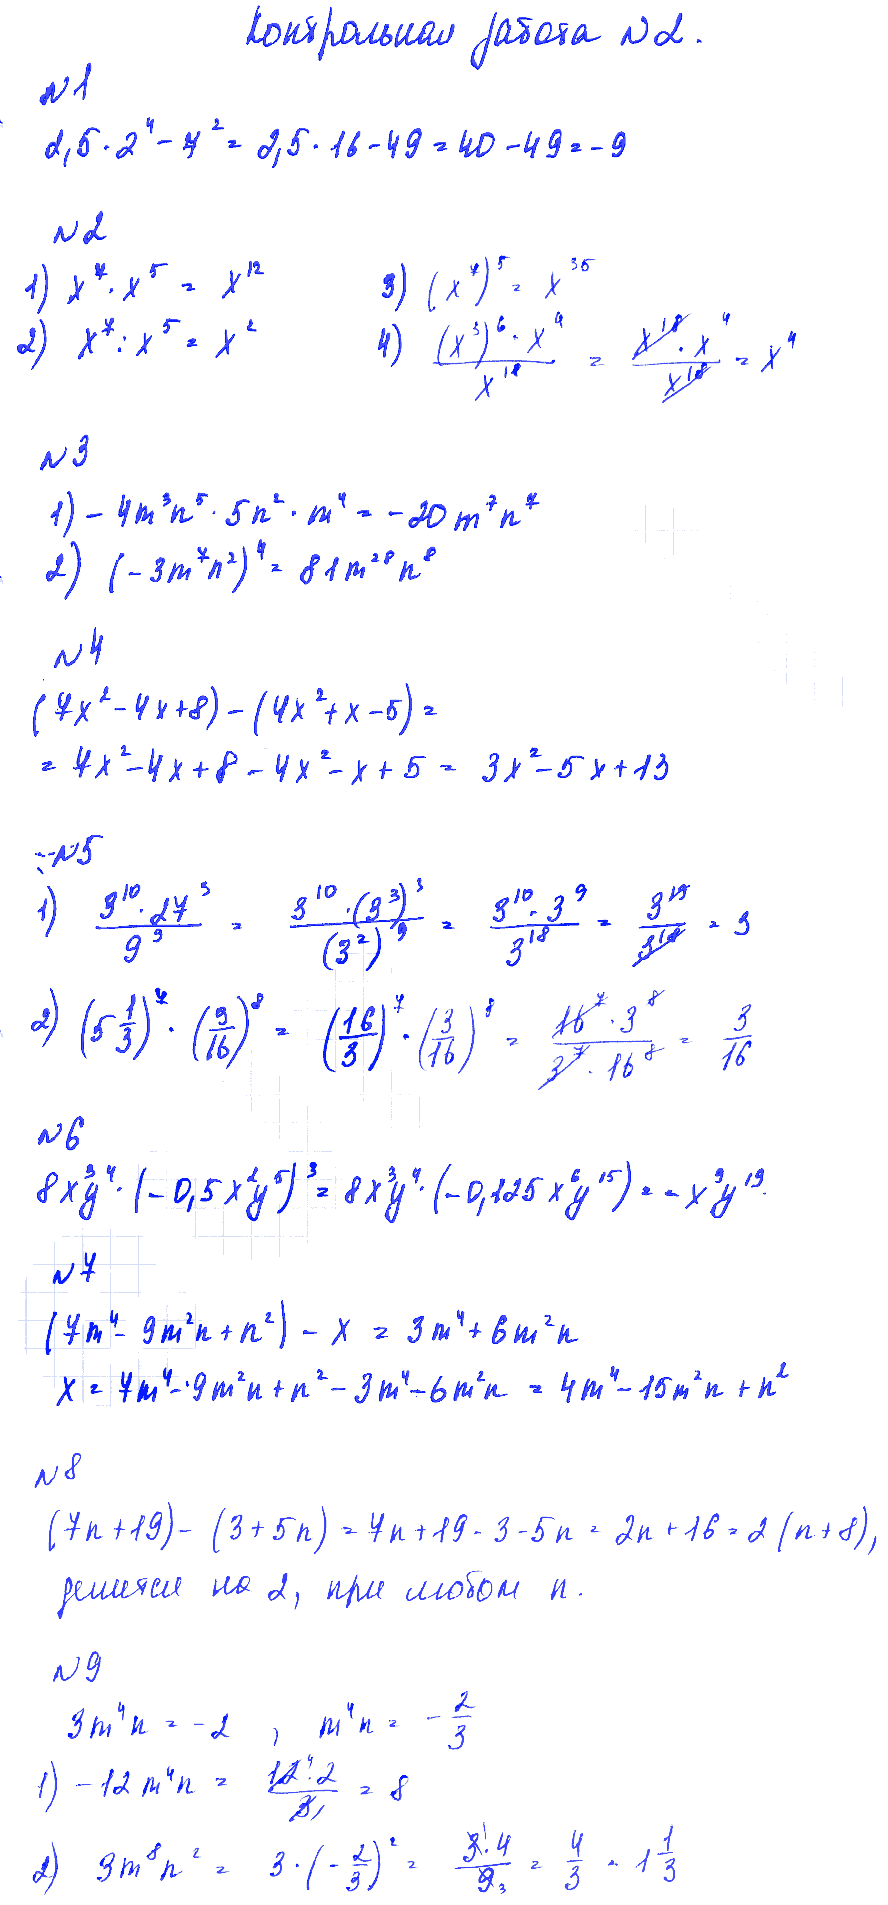 Контрольная работа N2.
N1
2,5·2⁴ - 7² = 2,5·16 - 49 = 40 - 49 = -9
N2
1) x⁷·x⁵ = x¹²
3) (x⁷)⁵ = x³⁵
2) x⁷:x⁵ = x²
4) (x³)⁶·x⁴/x¹⁸ = x¹⁸·x⁴/x¹⁸ = x⁴
N3
1) -4m³n⁵·5n²·m⁴ = -20m⁷n⁷
2) (-3m⁷n²)⁴ = 81m²⁸n⁸
N4
(7x² - 4x + 8) - (4x² + x - 5) =
= 7x² - 4x + 8 - 4x² - x + 5 = 3x² - 5x + 13
N5
1) 3¹⁰·27³/9⁹ = 3¹⁰·(3³)³/(3²)⁹ = 3¹⁰·3⁹/3¹⁸ = 3¹⁹/3¹⁸ = 3
2) (5 1/3)⁷·(3/16)⁸ = (16/3)⁷·(3/16)⁸ = 16⁷·3⁸/3⁷·16⁸ = 3/16
N6
8x³y⁴·(-0,5x²y⁵)³ = 8x³y⁴·(-0,125x⁶y¹⁵) = -x⁹y¹⁹.
N7
(7m⁴ - 9m²n + n²) - x = 3m⁴ + 6m²n
x = 7m⁴ - 9m²n + n² - 3m⁴ - 6m²n = 4m⁴ - 15m²n + n²
N8
(7n + 19) - (3 + 5n) = 7n + 19 - 3 - 5n = 2n + 16 = 2(n + 8),
делится на 2, при любом n.
N9
3m⁴n = -2 , m⁴n = -2/3
1) -12m⁴n = 12⁴·2/3₁ = 8
2) 3m⁸n² = 3·(-2/3)² = 3¹·4/9₃ = 4/3 = 1 1/3